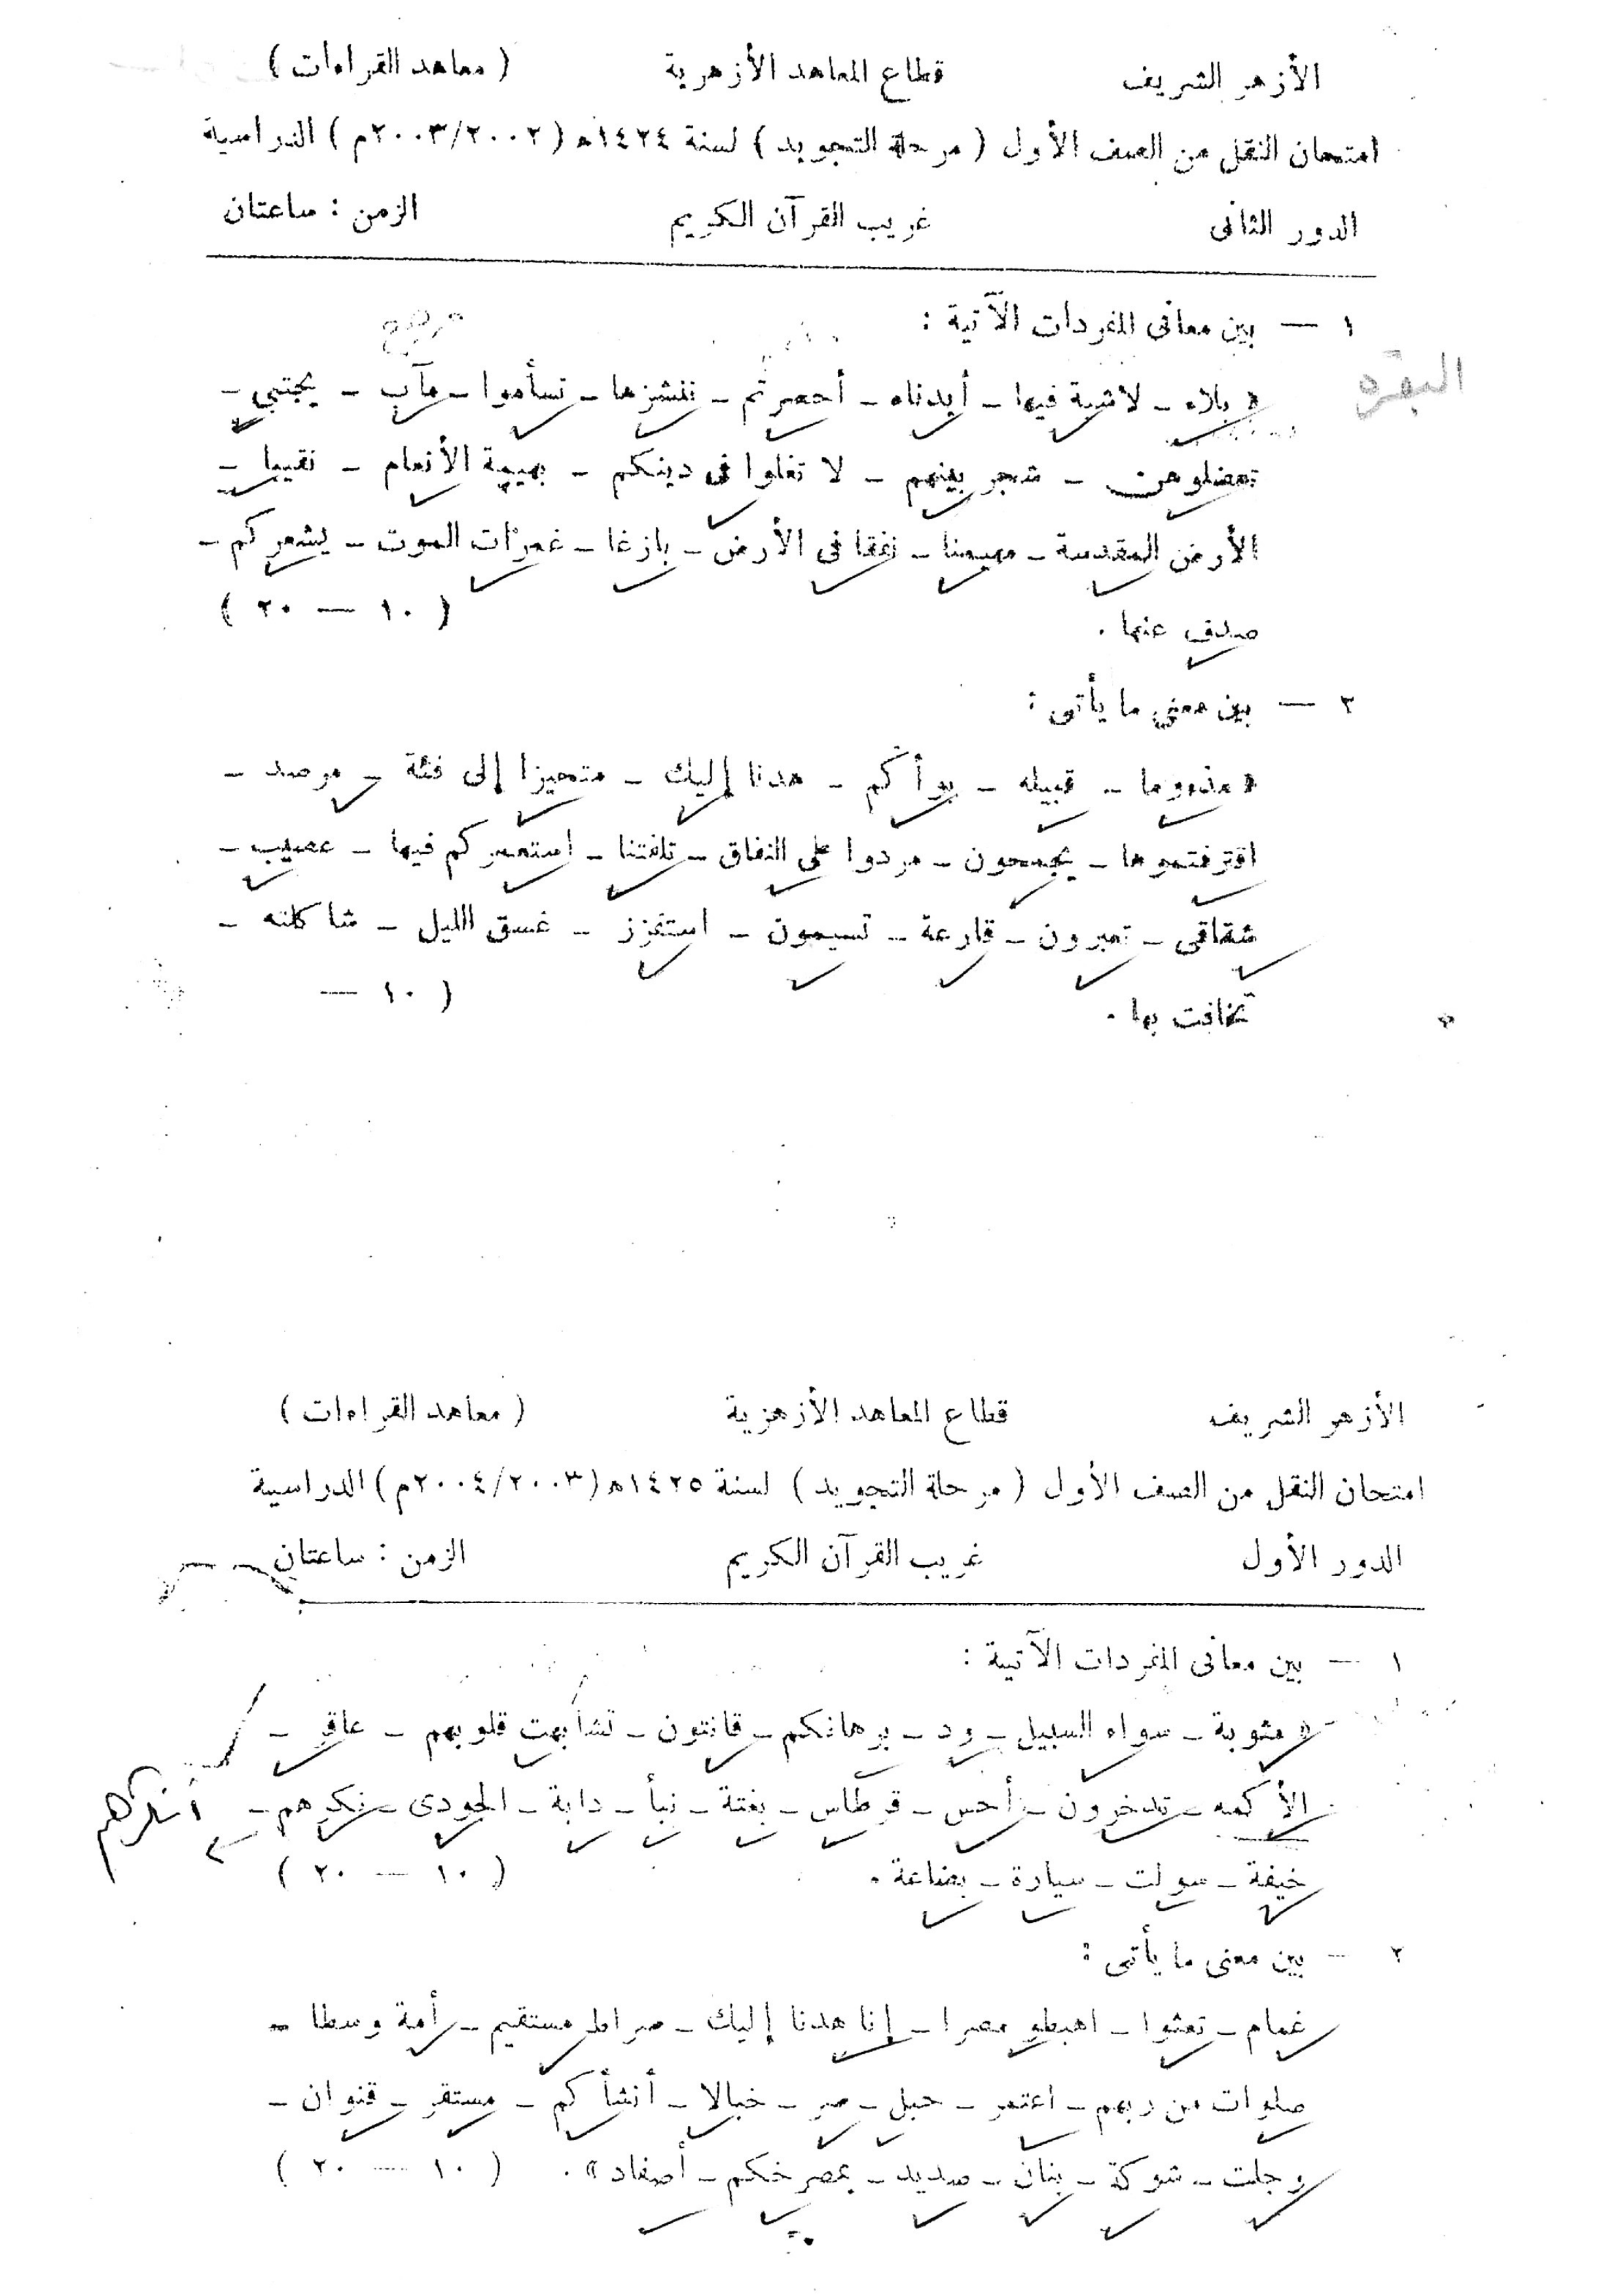 الأزهر الشريف قطاع المعاهد الأزهرية ( معاهد القراءات )
امتحان النقل من الصف الأول ( مرحلة التجويد ) لسنة ١٤٢٤هـ ( ٢٠٠٣/٢٠٠٢م ) الدراسية
الدور الثانى غريب القرآن الكريم الزمن : ساعتان
١ — بين معانى المفردات الآتية :
البقره
« بلاء - لاشية فيها - أيدناه - أحصرتم - ننشزها - تسأموا - مآب - يجتبي -
تعضلوهن - شجر بينهم - لا تغلوا فى دينكم - بهيمة الأنعام - نقيبا -
الأرض المقدسة - مهيمنا - نفقا فى الأرض - بازغا - غمرات الموت - يشعركم -
صدف عنها . ( ١٠ — ٢٠ )
٢ — بين معني ما يأتى :
« مذءوما - قبيله - بوأكم - هدنا إليك - متحيزا إلى فئة - مرصد -
اقترفتموها - يجمحون - مردوا على النفاق - تلفتنا - استعمركم فيها - عصيب -
شقاقى - تعبرون - قارعة - تسيمون - استفزز - غسق الليل - شاكلته -
تخافت بها . ( ١٠ —
الأزهر الشريف قطاع المعاهد الأزهرية ( معاهد القراءات )
امتحان النقل من الصف الأول ( مرحلة التجويد ) لسنة ١٤٢٥هـ (٢٠٠٤/٢٠٠٣م) الدراسية
الدور الأول غريب القرآن الكريم الزمن : ساعتان
١ — بين معانى المفردات الآتية :
« مثوبة - سواء السبيل - ود - برهانكم - قانتون - تشابهت قلوبهم - عاقر -
الأكمه - تدخرون - أحس - قرطاس - بغتة - نبأ - دابة - الجودى - نكرهم -
خيفة - سولت - سيارة - بضاعة . ( ١٠ — ٢٠ )
٢ — بين معنى ما يأتى :
غمام - تعثوا - اهبطو مصرا - إنا هدنا إليك - صراط مستقيم - أمة وسطا -
صلوات من ربهم - اعتمر - حبل - صر - خبالا - أنشأكم - مستقر - قنوان -
وجلت - شوكة - بنان - صديد - بمصرخكم - أصفاد » . ( ١٠ — ٢٠ )